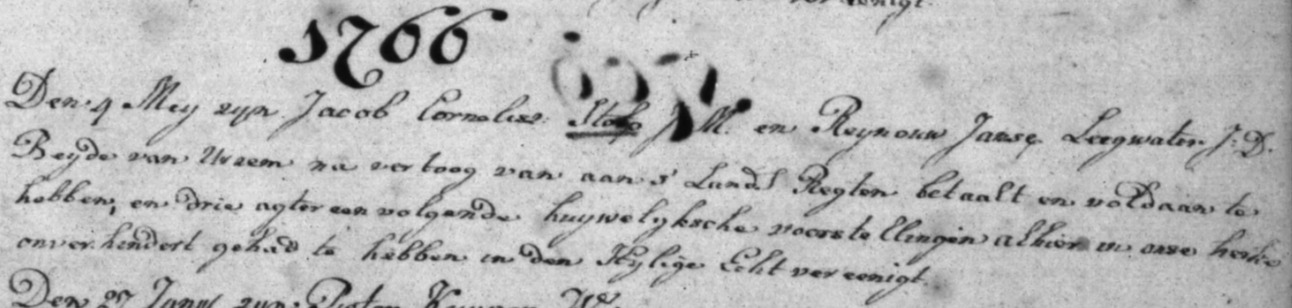 vereenigt.
1766
Den 4 Mey zyn Jacob Cornelisz: Stolp J M. en Reynouw Janse Leegwater J: D.
Beyde van Urzem na vertoog van aan s' Lands Regten betaalt en voldaan te
hebben, en drie agter een volgende huywelyksche voorstellingen alhier in onse kerke
onverhindert gehad te hebben in den Hylige Echt vereenigt.
Den 27 zyn: Pieter